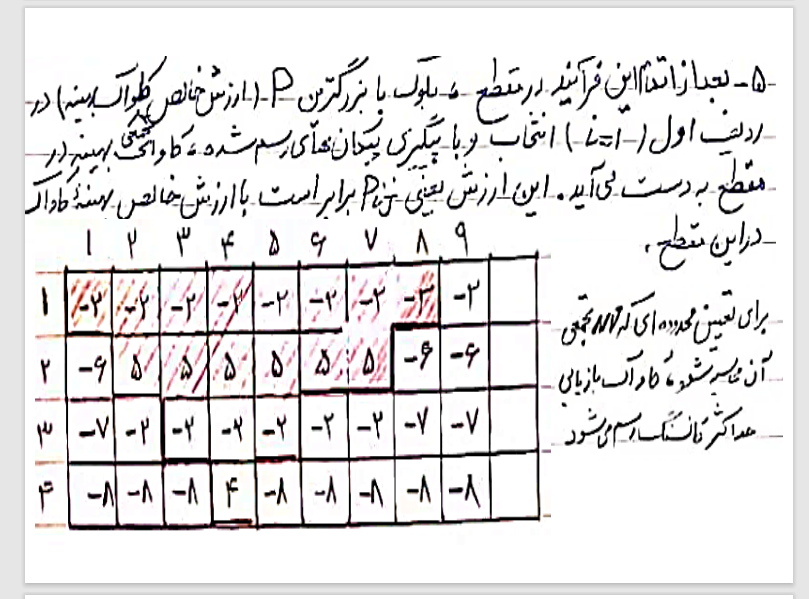 ۵- بعد از اتمام این فرآیند در مقطع ، بلوک با بزرگترین P (ارزش خالص کاواک بهینه) در
ردیف اول (i=1) انتخاب و با پیگیری پیکان‌های رسم شده ، کاواک بهینه در
مقطع به دست می‌آید . این ارزش یعنی P برابر است با ارزش خالص بهینهٔ کاواک
در این مقطع .
۱ ۲ ۳ ۴ ۵ ۶ ۷ ۸ ۹
۱ -۳ -۲ -۲ -۲ -۲ -۲ -۲ -۳ -۲
۲ -۶ ۵ ۵ ۵ ۵ ۵ ۵ -۶ -۶
۳ -۷ -۲ -۲ -۲ -۲ -۲ -۲ -۷ -۷
۴ -۸ -۸ -۸ ۴ -۸ -۸ -۸ -۸ -۸
برای تعیین محدوده‌ای که تجمعی
آن شود ، کاواک بازیابی
حداکثر تناژ رسم می‌شود